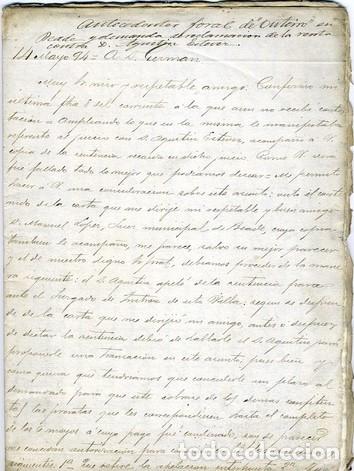 Antecedentes foral de Outeiro en
Beade y demanda de reclamacion de la renta
contra D. Agustin Estevez
14 Mayo 94 = A. S. German
Muy Sr. mio y respetable amigo: Confirmo mi
ultima fha 8 del corriente a la que aun no recibi contes-
tacion. Ampliando lo que en la misma le manifestaba
referente al juicio con D. Agustin Estevez, acompaño a V.
copia de la sentencia recaida en dicho juicio. Como V. verá
fué fallado todo lo mejor que podiamos desear. Me permito
hacer a V. una consideracion sobre este asunto: ante el conte-
nido de la carta que me dirije mi respetable y buen amigo
D. Manuel Lopez, Juez municipal de Beade, cuya copia
tambien le acompaño, me parece, salvo su mejor parecer
y el de nuestro digno letrado, debiamos proceder de la mane-
ra siguiente: el D. Agustin apeló de la sentencia
ante el Juzgado de Instron de esta Villa; segun se despren-
de de la carta que me dirijió mi amigo, antes o despues
de dictar la sentencia debió de hablarle el D. Agustin para
proponerle una transacion en este asunto; pues bien y
como quiera que tendriamos que concederle un plazo al
demandado para que este cobrase de los demas
las prorratas que les correspondieren hasta el completo
de los 6 mayos a cuyo pago fué condenado,